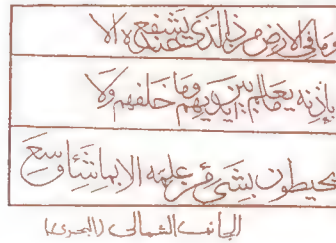 وما في الارض من ذا الذي يشفع عنده الا
باذنه يعلم ما بين ايديهم وما خلفهم ولا
يحيطون بشئ من علمه الا بما شاء وسع
الجانب الشمالى (البحرى)